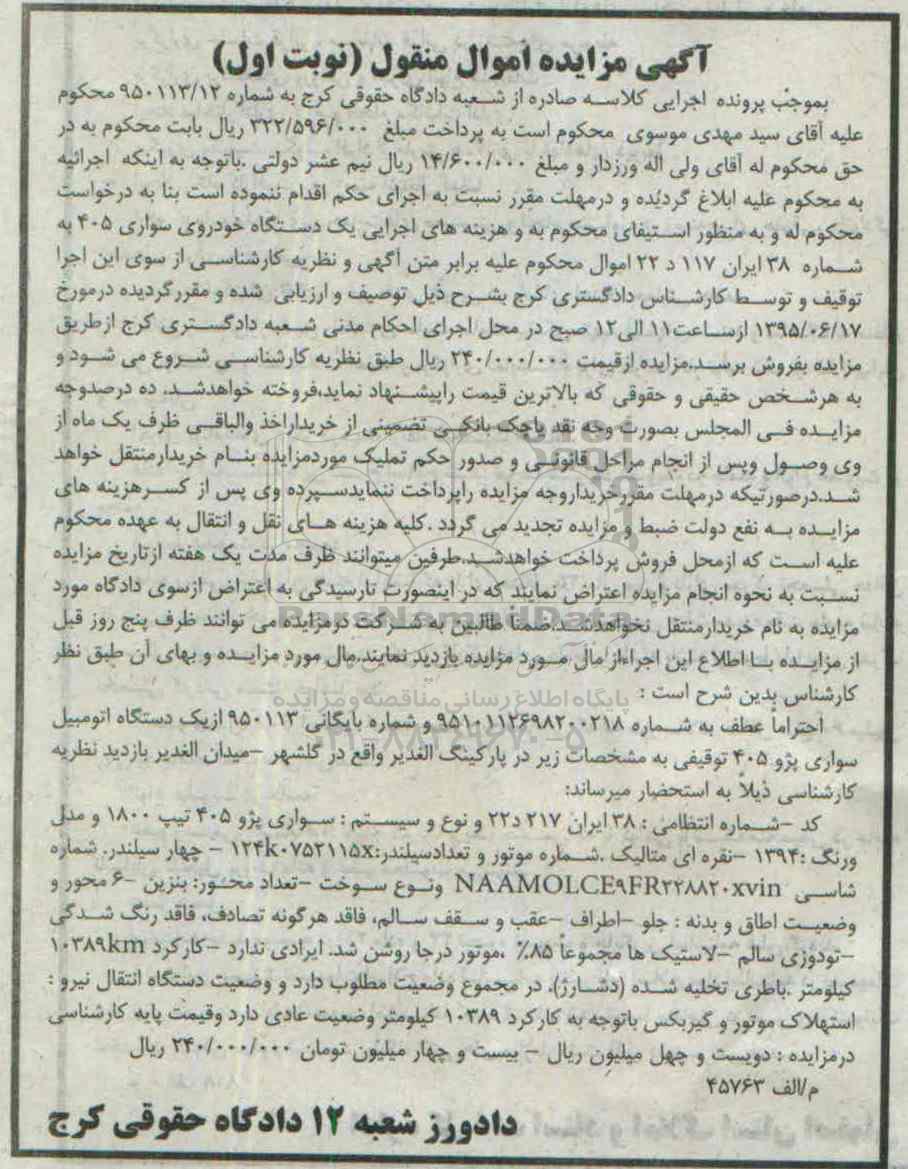 آگهی مزایده اموال منقول (نوبت اول)
بموجب پرونده اجرایی کلاسه صادره از شعبه دادگاه حقوقی کرج به شماره ۹۵۰۱۱۳/۱۲ محکوم
علیه آقای سید مهدی موسوی محکوم است به پرداخت مبلغ ۳۲۲/۵۹۶/۰۰۰ ریال بابت محکوم به در
حق محکوم له آقای ولی اله ورزدار و مبلغ ۱۴/۶۰۰/۰۰۰ ریال نیم عشر دولتی .باتوجه به اینکه اجرائیه
به محکوم علیه ابلاغ گردیده و درمهلت مقرر نسبت به اجرای حکم اقدام ننموده است بنا به درخواست
محکوم له و به منظور استیفای محکوم به و هزینه های اجرایی یک دستگاه خودروی سواری ۴۰۵ به
شماره ۳۸ ایران ۱۱۷ د ۲۲ اموال محکوم علیه برابر متن آگهی و نظریه کارشناسی از سوی این اجرا
توقیف و توسط کارشناس دادگستری کرج بشرح ذیل توصیف و ارزیابی شده و مقرر گردیده درمورخ
۱۳۹۵/۰۶/۱۷ ازساعت۱۱ الی۱۲ صبح در محل اجرای احکام مدنی شعبه دادگستری کرج ازطریق
مزایده بفروش برسد.مزایده ازقیمت ۲۴۰/۰۰۰/۰۰۰ ریال طبق نظریه کارشناسی شروع می شود و
به هرشخص حقیقی و حقوقی که بالاترین قیمت راپیشنهاد نماید،فروخته خواهدشد. ده درصدوجه
مزایده فی المجلس بصورت وجه نقد یاچک بانکی تضمینی از خریداراخذ والباقی ظرف یک ماه از
وی وصول وپس از انجام مراحل قانونی و صدور حکم تملیک موردمزایده بنام خریدارمنتقل خواهد
شد.درصورتیکه درمهلت مقررخریداروجه مزایده راپرداخت ننمایدسپرده وی پس از کسرهزینه های
مزایده به نفع دولت ضبط و مزایده تجدید می گردد .کلیه هزینه های نقل و انتقال به عهده محکوم
علیه است که ازمحل فروش پرداخت خواهدشد.طرفین میتوانند ظرف مدت یک هفته ازتاریخ مزایده
نسبت به نحوه انجام مزایده اعتراض نمایند که در اینصورت تارسیدگی به اعتراض ازسوی دادگاه مورد
مزایده به نام خریدارمنتقل نخواهدشد.ضمنا طالبین به شرکت درمزایده می توانند ظرف پنج روز قبل
از مزایده با اطلاع این اجراءاز مال مورد مزایده بازدید نمایند.مال مورد مزایده و بهای آن طبق نظر
کارشناس بدین شرح است :
احتراماً عطف به شماره ۹۵۱۰۱۱۲۶۹۸۲۰۰۲۱۸ و شماره بایگانی ۹۵۰۱۱۳ ازیک دستگاه اتومبیل
سواری پژو ۴۰۵ توقیفی به مشخصات زیر در پارکینگ الغدیر واقع در گلشهر –میدان الغدیر بازدید نظریه
کارشناسی ذیلاً به استحضار میرساند:
کد –شماره انتظامی : ۳۸ ایران ۲۱۷ د۲۲ و نوع و سیستم : سواری پژو ۴۰۵ تیپ ۱۸۰۰ و مدل
ورنگ :۱۳۹۴ –نقره ای متالیک .شماره موتور و تعدادسیلندر:۱۲۴k۰۷۵۲۱۱۵x – چهار سیلندر. شماره
شاسی NAAMOLCE۹FR۲۲۸۸۲۰xvin ونوع سوخت –تعداد محور: بنزین –۶ محور و
وضعیت اطاق و بدنه : جلو –اطراف –عقب و سقف سالم، فاقد هرگونه تصادف، فاقد رنگ شدگی
–تودوزی سالم –لاستیک ها مجموعاً ۸۵٪ ،موتور درجا روشن شد. ایرادی ندارد –کارکرد ۱۰۳۸۹km
کیلومتر .باطری تخلیه شده (دشارژ). در مجموع وضعیت مطلوب دارد و وضعیت دستگاه انتقال نیرو :
استهلاک موتور و گیربکس باتوجه به کارکرد ۱۰۳۸۹ کیلومتر وضعیت عادی دارد وقیمت پایه کارشناسی
درمزایده : دویست و چهل میلیون ریال – بیست و چهار میلیون تومان ۲۴۰/۰۰۰/۰۰۰ ریال
م/الف ۴۵۷۶۳
دادورز شعبه ۱۲ دادگاه حقوقی کرج
ParsNamadData
پایگاه اطلاع رسانی مناقصه و مزایده